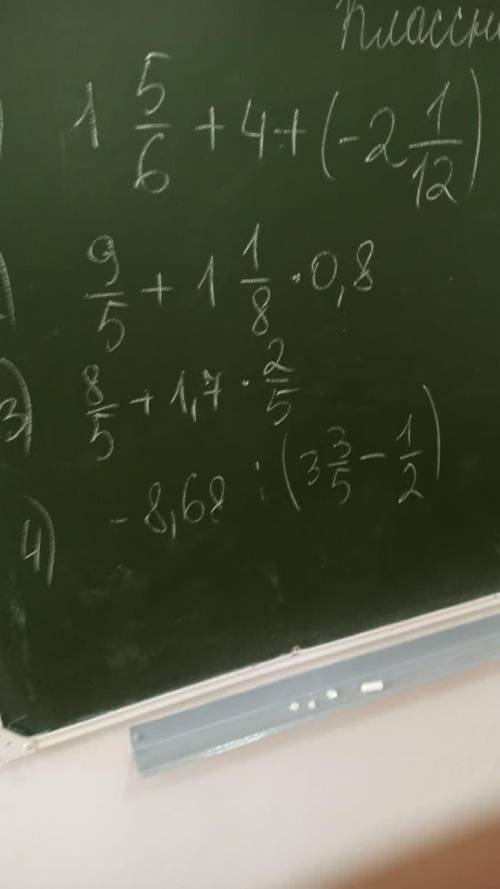 Классн
) 1 5/6 + 4 + (-2 1/12)
) 9/5 + 1 1/8 · 0,8
3) 8/5 + 1,7 · 2/5
4) -8,68 : (3 3/5 - 1/2)